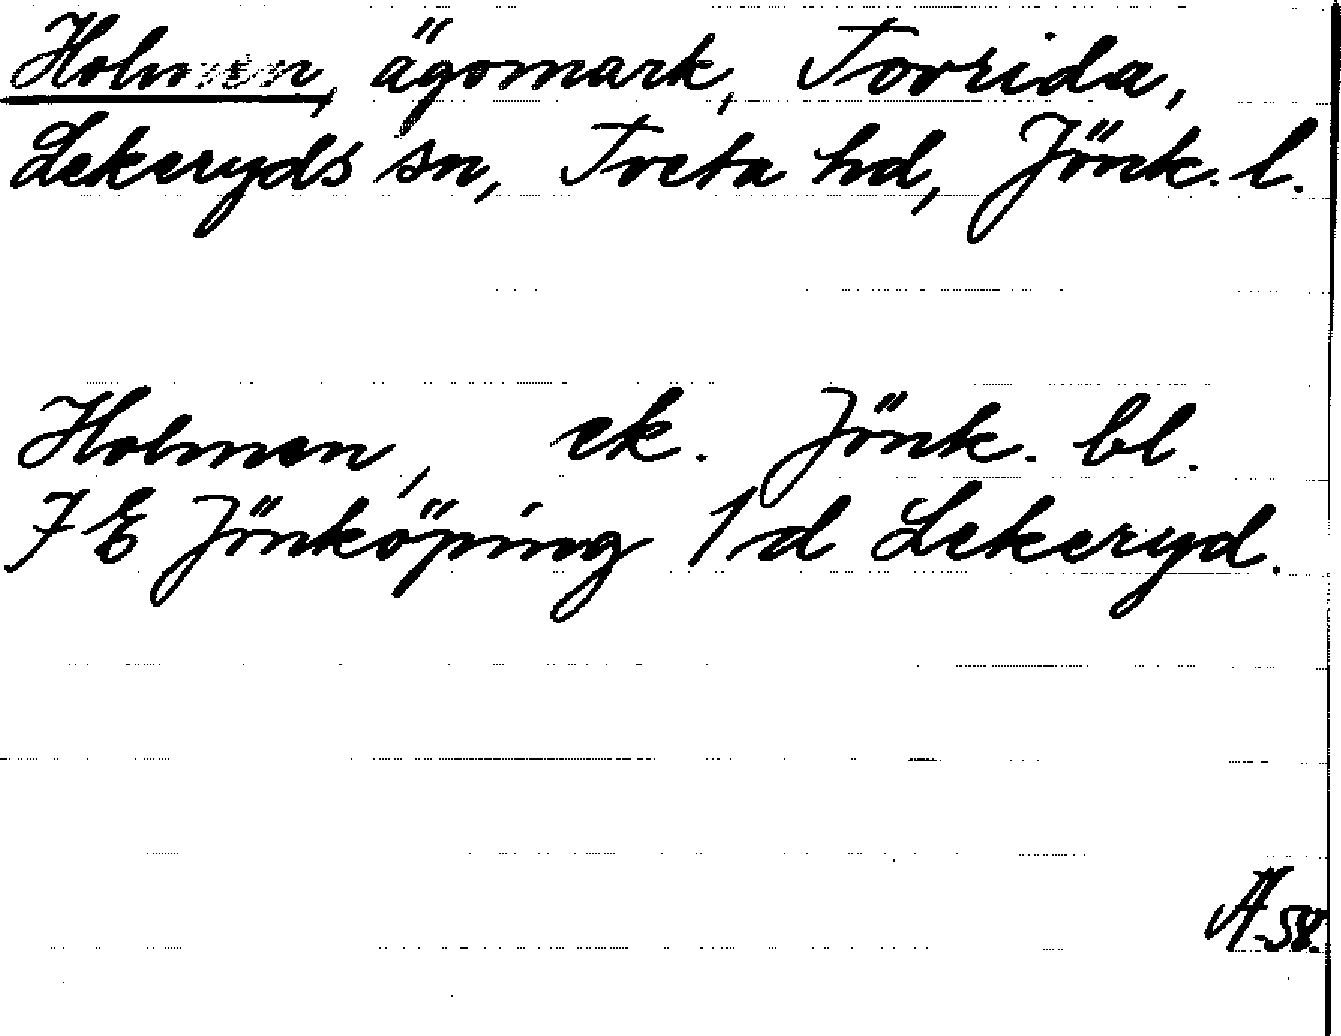 Holmen, ägomark, Torrida,
Lekeryds sn, Tveta hd, Jönk. l.
Holmen, ek. Jönk. bl.
7 E Jönköping 1 d Lekeryd.
A-58.